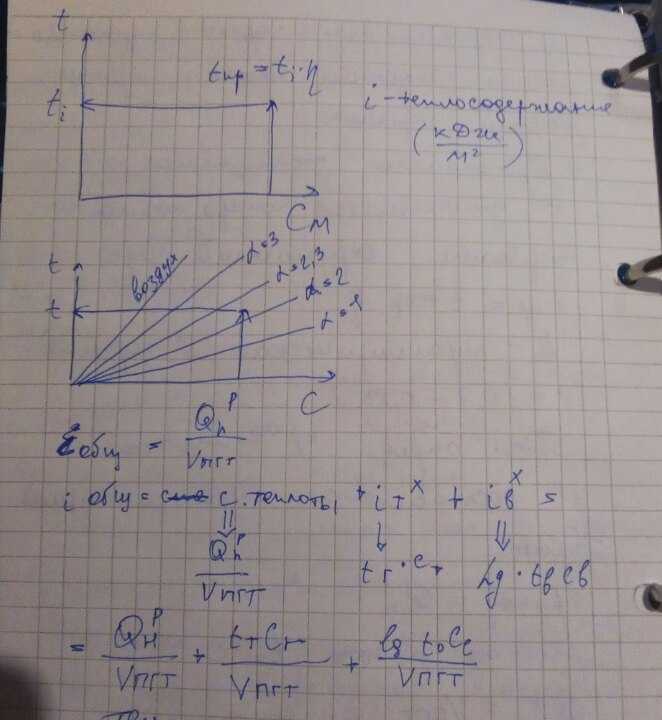 t
tпр = ti·η
ti
i - теплосодержание
(кДж/м²)
См
t
воздух
α=3
α=2,3
α=2
t
α=1
С
iобщ = Qнᴾ / Vпгт
i общ = с. теплоты + iтˣ + iвˣ =
⇓ ↓ ⇓
Qнᴾ / Vпгт
tт·Ст
Lg·tв Св
= Qнᴾ / Vпгт + tтСт / Vпгт + Lg tв Св / Vпгт